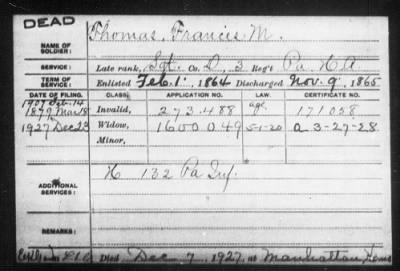 DEAD
NAME OF SOLDIER: Thomas, Francis M.
SERVICE: Late rank, Sgt. Co. D, 3 Reg't Pa. H A.
TERM OF SERVICE: Enlisted Feb. 1, 1864 Discharged Nov. 9, 1865
DATE OF FILING. CLASS. APPLICATION NO. LAW. CERTIFICATE NO.
1907 Feb. 14
1879 Mar 18 Invalid, 273.488 age 171058
1927 Dec 23 Widow, 1600049 5-1-20 a 3-27-28
Minor,
ADDITIONAL SERVICES: K 132 Pa Inf.
REMARKS:
Died Dec 7, 1927, at Manhattan, Kans